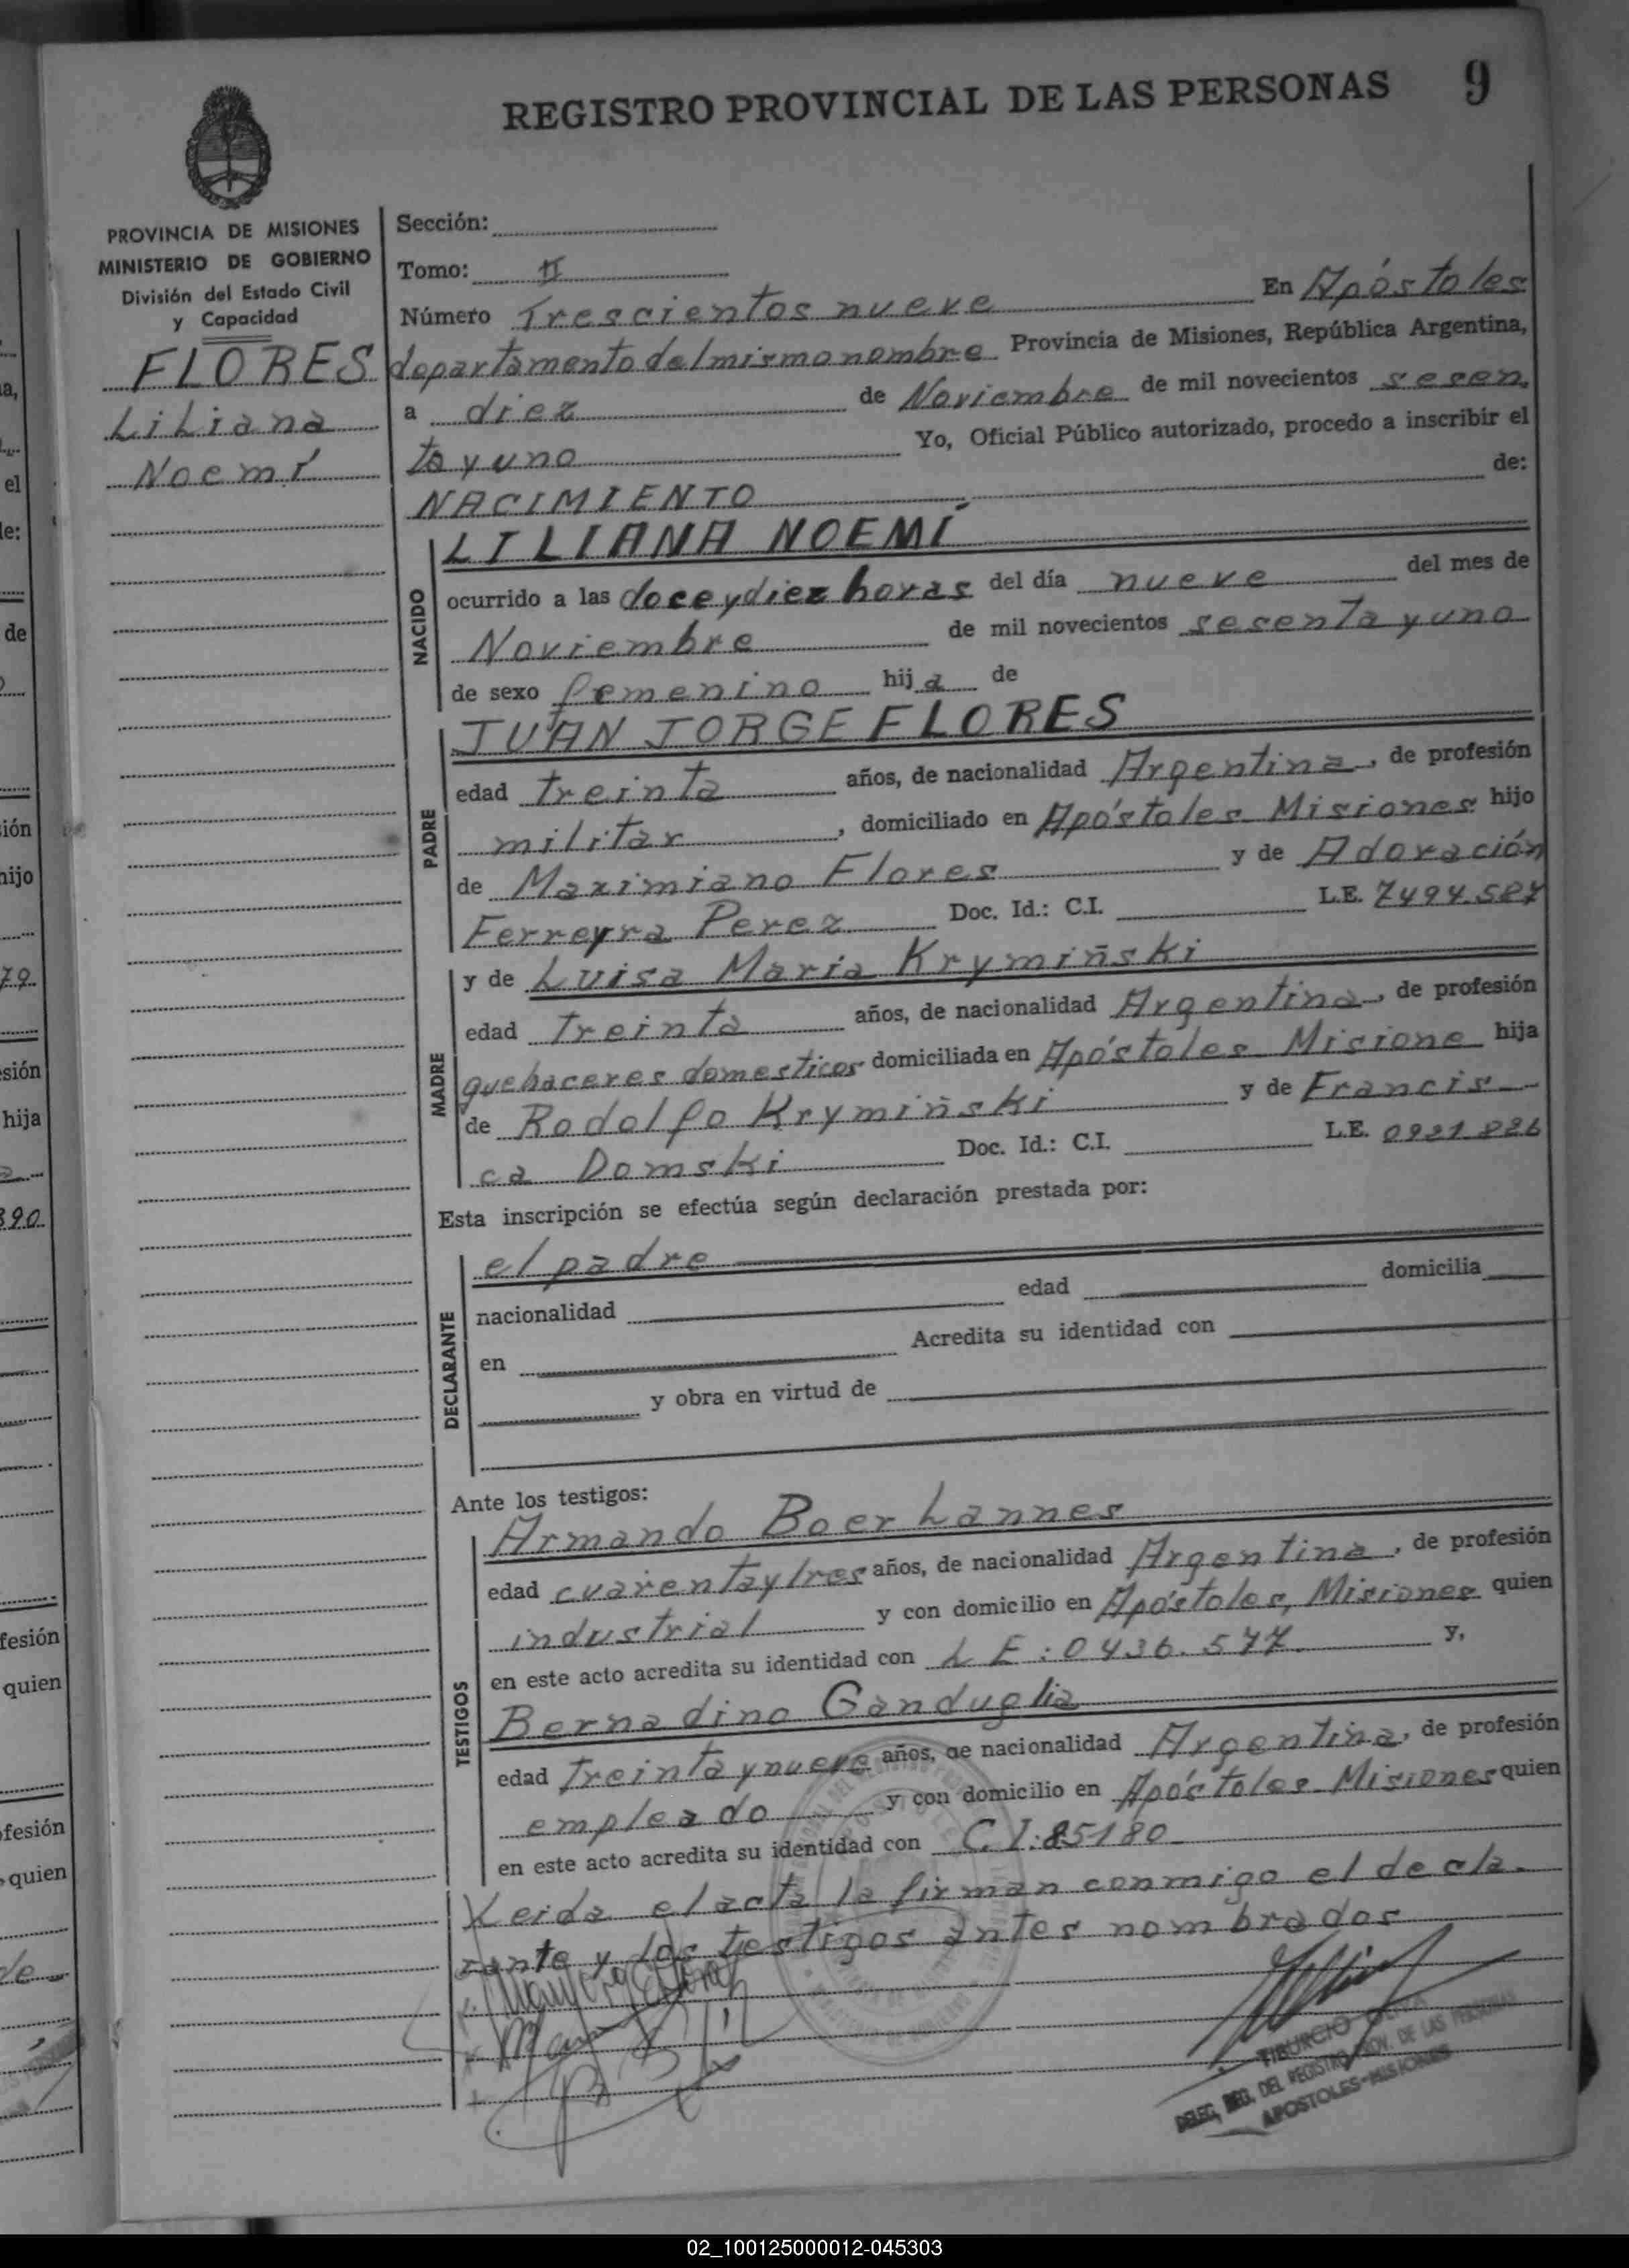 REGISTRO PROVINCIAL DE LAS PERSONAS 9
PROVINCIA DE MISIONES
MINISTERIO DE GOBIERNO
División del Estado Civil
y Capacidad
FLORES
Liliana
Noemí
Sección:
Tomo: II
Número Trescientos nueve En Apóstoles
departamento del mismo nombre Provincia de Misiones, República Argentina,
a diez de Noviembre de mil novecientos sesen
ta y uno Yo, Oficial Público autorizado, procedo a inscribir el
NACIMIENTO de:
NACIDO
LILIANA NOEMÍ
ocurrido a las doce y diez horas del día nueve del mes de
Noviembre de mil novecientos sesenta y uno
de sexo femenino hija de
PADRE
JUAN JORGE FLORES
edad treinta años, de nacionalidad Argentina, de profesión
militar, domiciliado en Apóstoles Misiones hijo
de Maximiano Flores y de Adoración
Ferreyra Perez Doc. Id.: C.I. L.E. 7494.587
MADRE
y de Luisa Maria Krymiñski
edad Treinta años, de nacionalidad Argentina, de profesión
quehaceres domesticos domiciliada en Apóstoles Misione hija
de Rodolfo Krymiñski y de Francis
ca Domski Doc. Id.: C.I. L.E. 0921.886
Esta inscripción se efectúa según declaración prestada por:
DECLARANTE
el padre
nacionalidad edad domicilia
en Acredita su identidad con
y obra en virtud de
Ante los testigos:
TESTIGOS
Armando Boer Lannes
edad cuarenta y tres años, de nacionalidad Argentina, de profesión
industrial y con domicilio en Apóstoles, Misiones quien
en este acto acredita su identidad con L E: 0436.577. y,
Bernadino Ganduglia
edad Treinta y nueve años, de nacionalidad Argentina, de profesión
empleado y con domicilio en Apóstoles Misiones quien
en este acto acredita su identidad con C.I: 85180
Leida el acta la firman conmigo el decla
rante y los testigos antes nombrados
TIBURCIO
DELEG. REG. DEL REGISTRO PROV. DE LAS PERSONAS
APOSTOLES-MISIONES
02_100125000012-045303